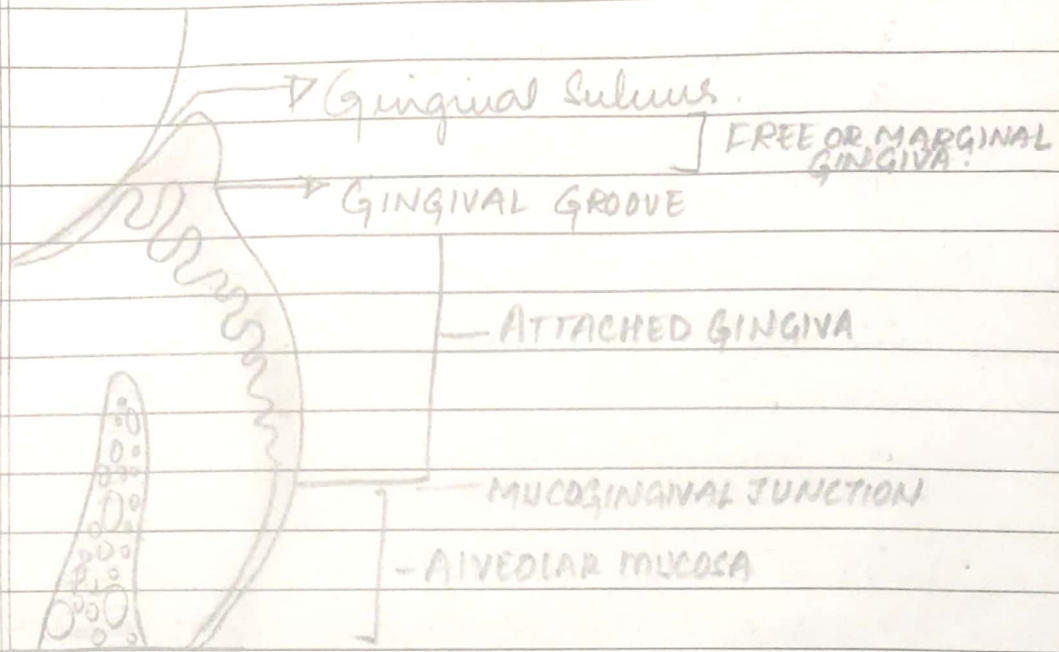 Gingival Sulcus.
FREE OR MARGINAL
GINGIVA.
GINGIVAL GROOVE
ATTACHED GINGIVA
MUCOGINGIVAL JUNCTION
ALVEOLAR MUCOSA